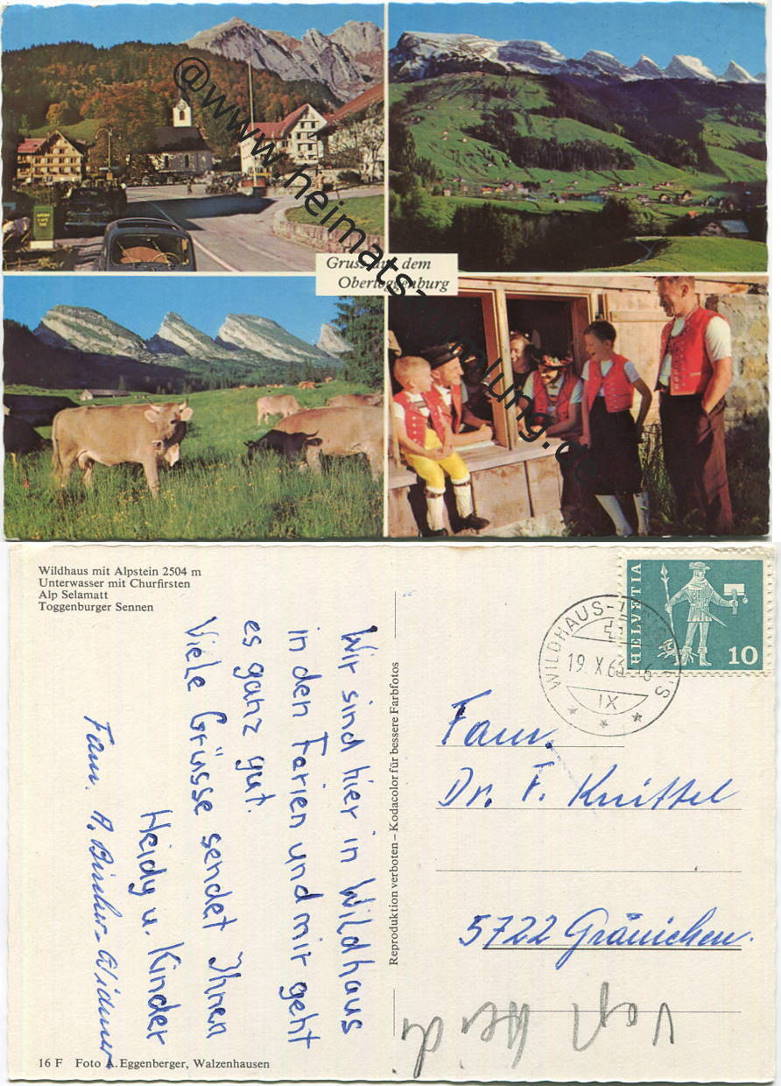 @www.heimatsammlung.de
Gruss aus dem
Obertoggenburg
Wildhaus mit Alpstein 2504 m
Unterwasser mit Churfirsten
Alp Selamatt
Toggenburger Sennen
Wir sind hier in Wildhaus
in den Ferien und mir geht
es ganz gut.
Viele Grüsse sendet Ihnen
Heidy u. Kinder
Fam. A.
16 F Foto A. Eggenberger, Walzenhausen
Reproduktion verboten – Kodacolor für bessere Farbfotos
HELVETIA
10
WILDHAUS
19.X.6
IX
Fam.
Dr. F. Knittel
5722 Gränichen.
Vogt Heidi